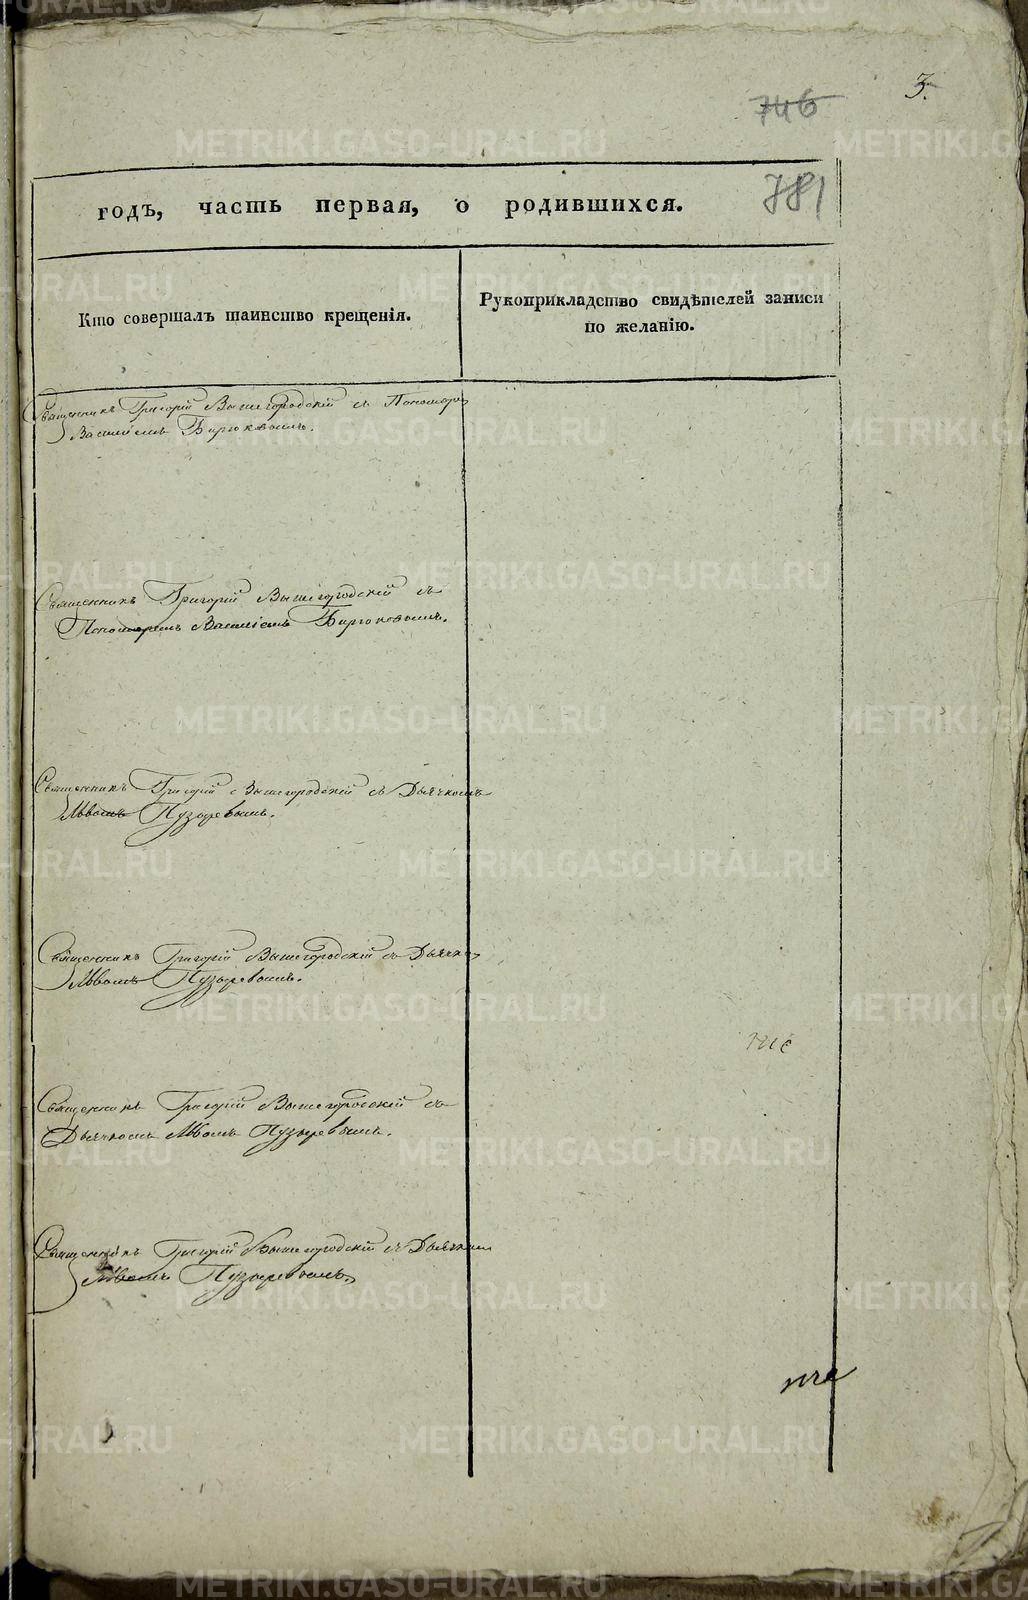 3.
746
781
годъ, часть первая, о родившихся.
Кто совершалъ таинство крещенія.
Рукоприкладство свидѣтелей записи
по желанію.
Священникъ Григорій Вышегородскій съ Пономаремъ
Василіемъ Бирюковымъ.
Священникъ Григорій Вышегородскій съ
Пономаремъ Василіемъ Бирюковымъ.
Священникъ Григорій Вышегородскій съ Дьячкомъ
Львомъ Пузыревымъ.
Священникъ Григорій Вышегородскій съ Дьячко
Львомъ Пузыревымъ.
Священникъ Григорій Вышегородскій съ
Дьячкомъ Львомъ Пузыревымъ.
Священникъ Григорій Вышегородскій съ Дьячкомъ
Львомъ Пузыревымъ.
METRIKI.GASO-URAL.RU